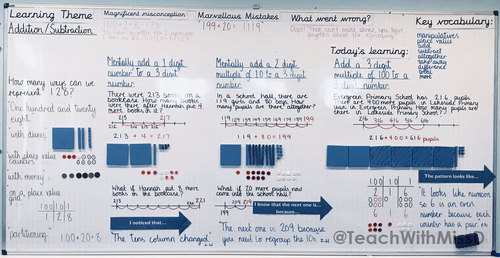 Learning Theme
Addition/Subtraction
How many ways can we
represent 128?
"One hundred and twenty
eight"
with dienes
with place value
counters
with money
on a place value
grid
100 10 1
1 2 8
"partitioning" 100+20+8
Magnificent misconception
Mentally add a 1 digit
number to a 3 digit
number
There were 213 books on a
bookcase. How many books
were there after Hannah put 4
more books on the bookcase?
213 217
213 + 4 = 217
What if Hannah put 8 more
books in the bookcase?
213 221
I noticed that...
"The tens column changed"
Marvellous Mistakes
199+20 = 1119
Mentally add a 2 digit
multiple of 10 to a 3 digit
number.
In a school hall, there are
119 girls and 80 boys. How
many pupils are there altogether?
119 129 139 149 159 169 179 189 199
119 + 80 = 199
What if 20 more pupils now
came into the school hall?
199 209 219
I know that the next one is...
because...
"The next one is 209 because
you need to regroup the 10s
What went wrong?
Today's learning:
Add a 3 digit
multiple of 100 to a 3 digit
number.
Evergreen Primary School has 216 pupils.
There are 400 more pupils in Lakeside Primary
than Evergreen Primary. How many pupils are
there in Lakeside Primary School?
216 316 416 516 616
216+400=616 pupils
100 10 1
2 1 6
6 1 6
Key vocabulary:
manipulatives
place value
add
subtract
altogether
take away
difference
total
more
The pattern looks like...
"It looks like numicon
so 6 is an even
number because each
counter has a pair"
@TeachWithMissD